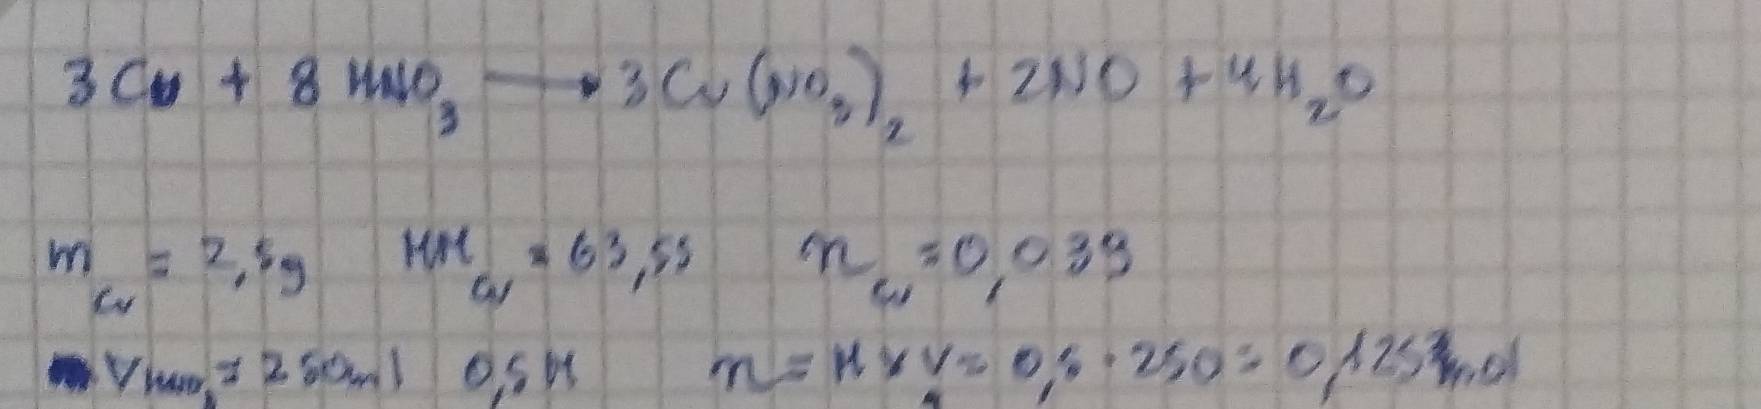 3Cu + 8HNO₃ → 3Cu(NO₃)₂ + 2NO + 4H₂O
m_Cu = 2,5g MM_Cu = 63,55 n_Cu = 0,039
V_HNO₃ = 250ml 0,5M n = M x V = 0,5 · 250 = 0,125 mol